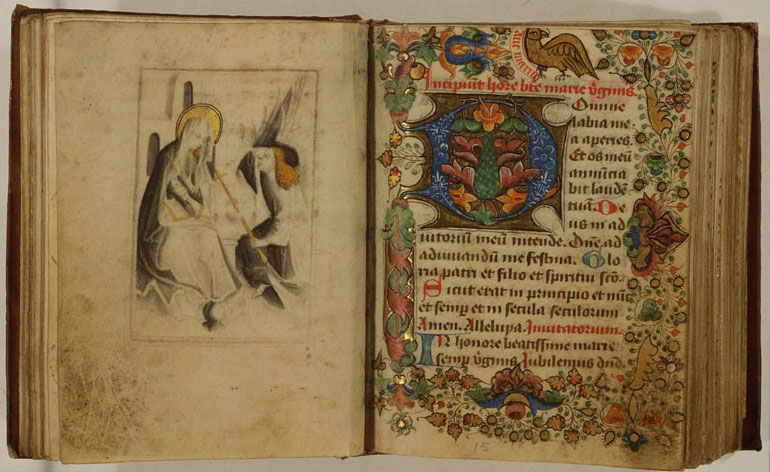 Aue maria
Incipiunt hore bte marie v̄ginis.
Domine
labia me
a aperies.
Et os meū
annūcia
bit laudē
tuā. De
us in ad
iutoriū meū intende. Dñe, ad
adiuuandū me festina. Glo
ria patri et filio et spiritui scō.
Sicut erat in principio et nūc
et semꝑ et in secula seculorum
Amen. Alleluya. Inuitatorium.
In honore beatissime marie
semꝑ v̄ginis Iubilemus dnō.
15